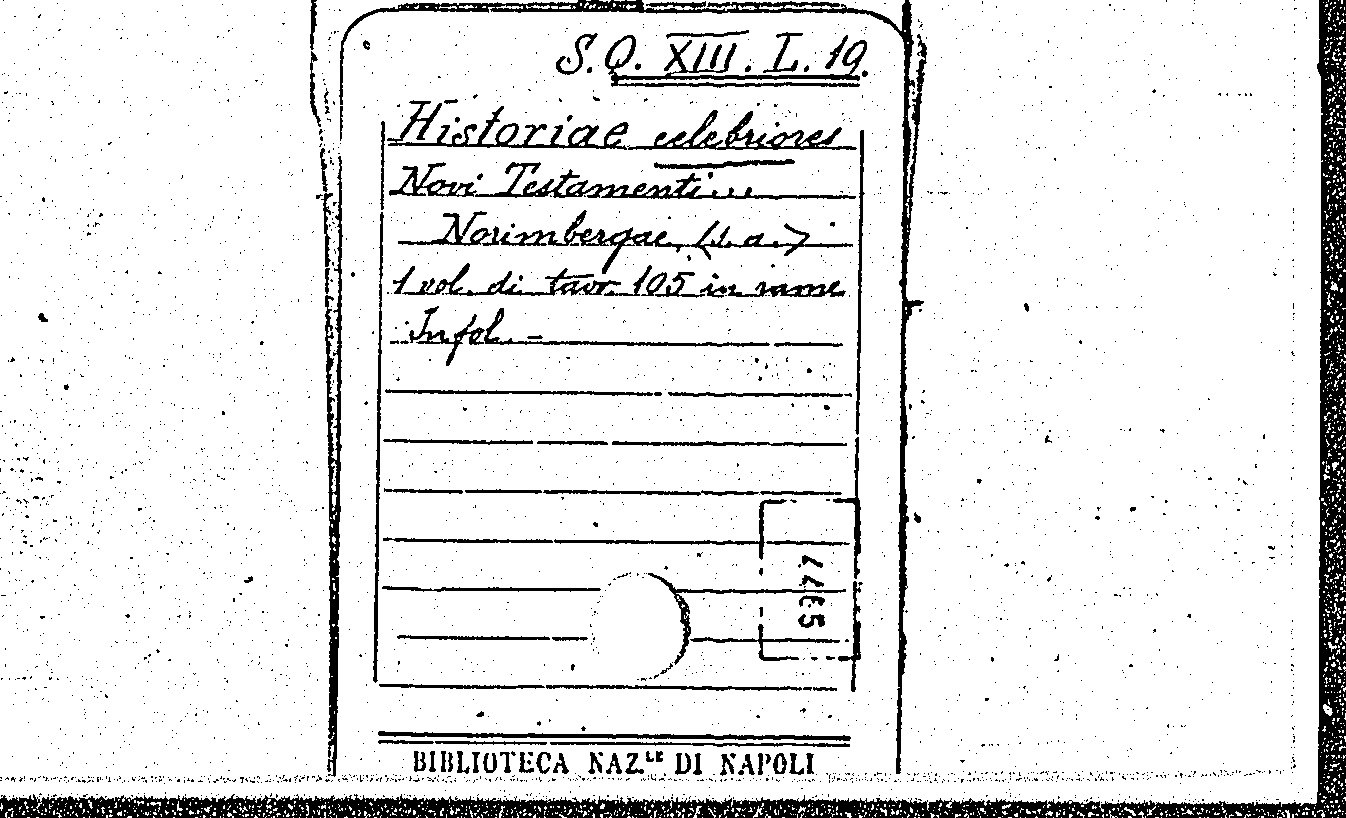 S.Q. XIII. L. 19.
Historiae celebriores
Novi Testamenti...
Norimbergae, (s. a.)
1 vol. di tavv. 105 in rame
In fol. -
BIBLIOTECA NAZ.LE DI NAPOLI